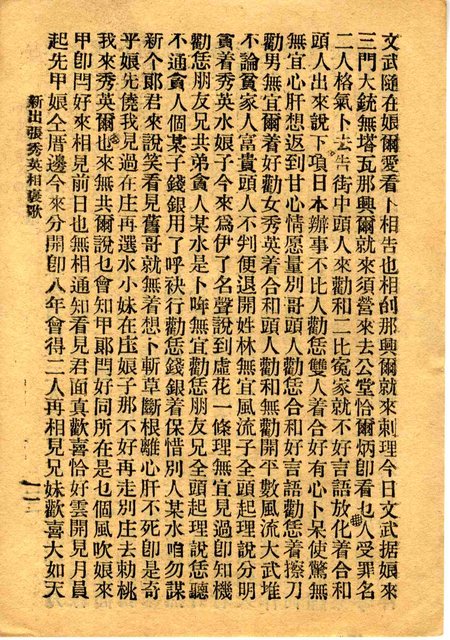 文武隨在娘爾愛看卜相告也相創那興爾就來剌理今日文武据娘來
三門大銃無塔瓦那興爾就來須營來去公堂恰爾炳卽看乜人受罪名
二人格氣卜去告街中頭人來勸和二比寃家就不好言語放化着合和
頭人出來說下項日本辦事不比人勸恁雙人着合好有心卜呆使驚無
無宜心肝想返到甘心情愿量別哥頭人勸恁合和好言語勸恁着擦刀
勸男無宜爾着好勸女秀英着合和頭人勸和無勸開平數風流大武堆
不論貧家人富貴頭人不判便退開姓林無宜風流子全頭起理說分明
貪着秀英水娘子今來爲伊了名聲說到虛花一條理無宜見過卽知機
勸恁朋友兄共弟貪人某水是卜哖無宜勸恁朋友兄全頭起理說恁聽
不通貪人個某子錢銀用了呼袂行勸恁錢銀着保惜別人某水咱勿謀
新个郞君來說笑看見舊哥就無着想卜斬草斷根離心肝不死卽是奇
乎娘先僥我見過在庄再選水小妹在庄娘子那不好再走別庄去勅桃
我來秀英爾也來無共爾說乜會知甲郞閂好同所在是乜個風吹娘來
甲卽閂好來相見前日也無相通知看見君面真歡喜恰好雲開見月員
起先甲娘仝厝邊今來分開卽八年會得二人再相見兄妹歡喜大如天
新出張秀英相褒歌
二